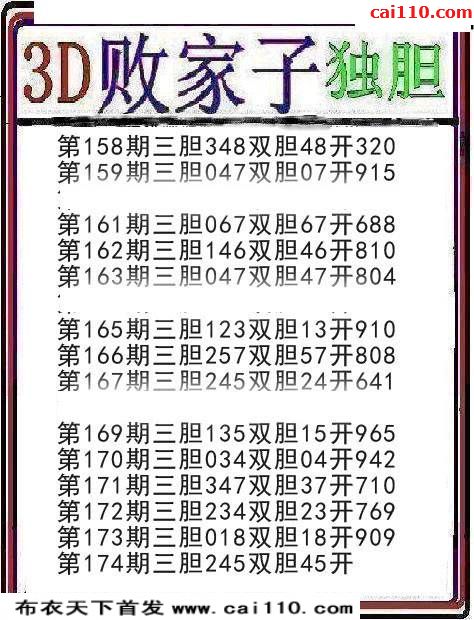 cai110.com
3D败家子独胆
第158期三胆348双胆48开320
第159期三胆047双胆07开915
第161期三胆067双胆67开688
第162期三胆146双胆46开810
第163期三胆047双胆47开804
第165期三胆123双胆13开910
第166期三胆257双胆57开808
第167期三胆245双胆24开641
第169期三胆135双胆15开965
第170期三胆034双胆04开942
第171期三胆347双胆37开710
第172期三胆234双胆23开769
第173期三胆018双胆18开909
第174期三胆245双胆45开
布衣天下首发 www.cai110.com